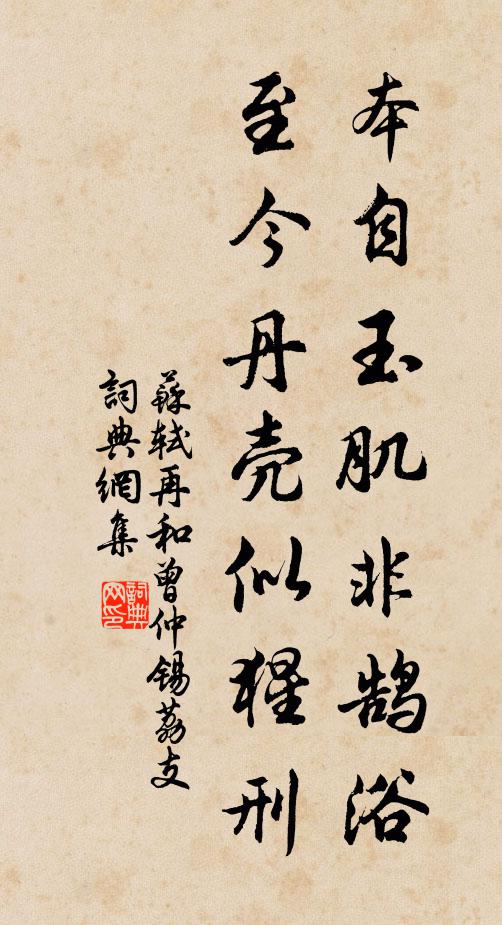 本自玉肌非鹄浴
至今丹壳似猩刑
蘇軾再和曾仲锡荔支
詞典網集
詞典网印